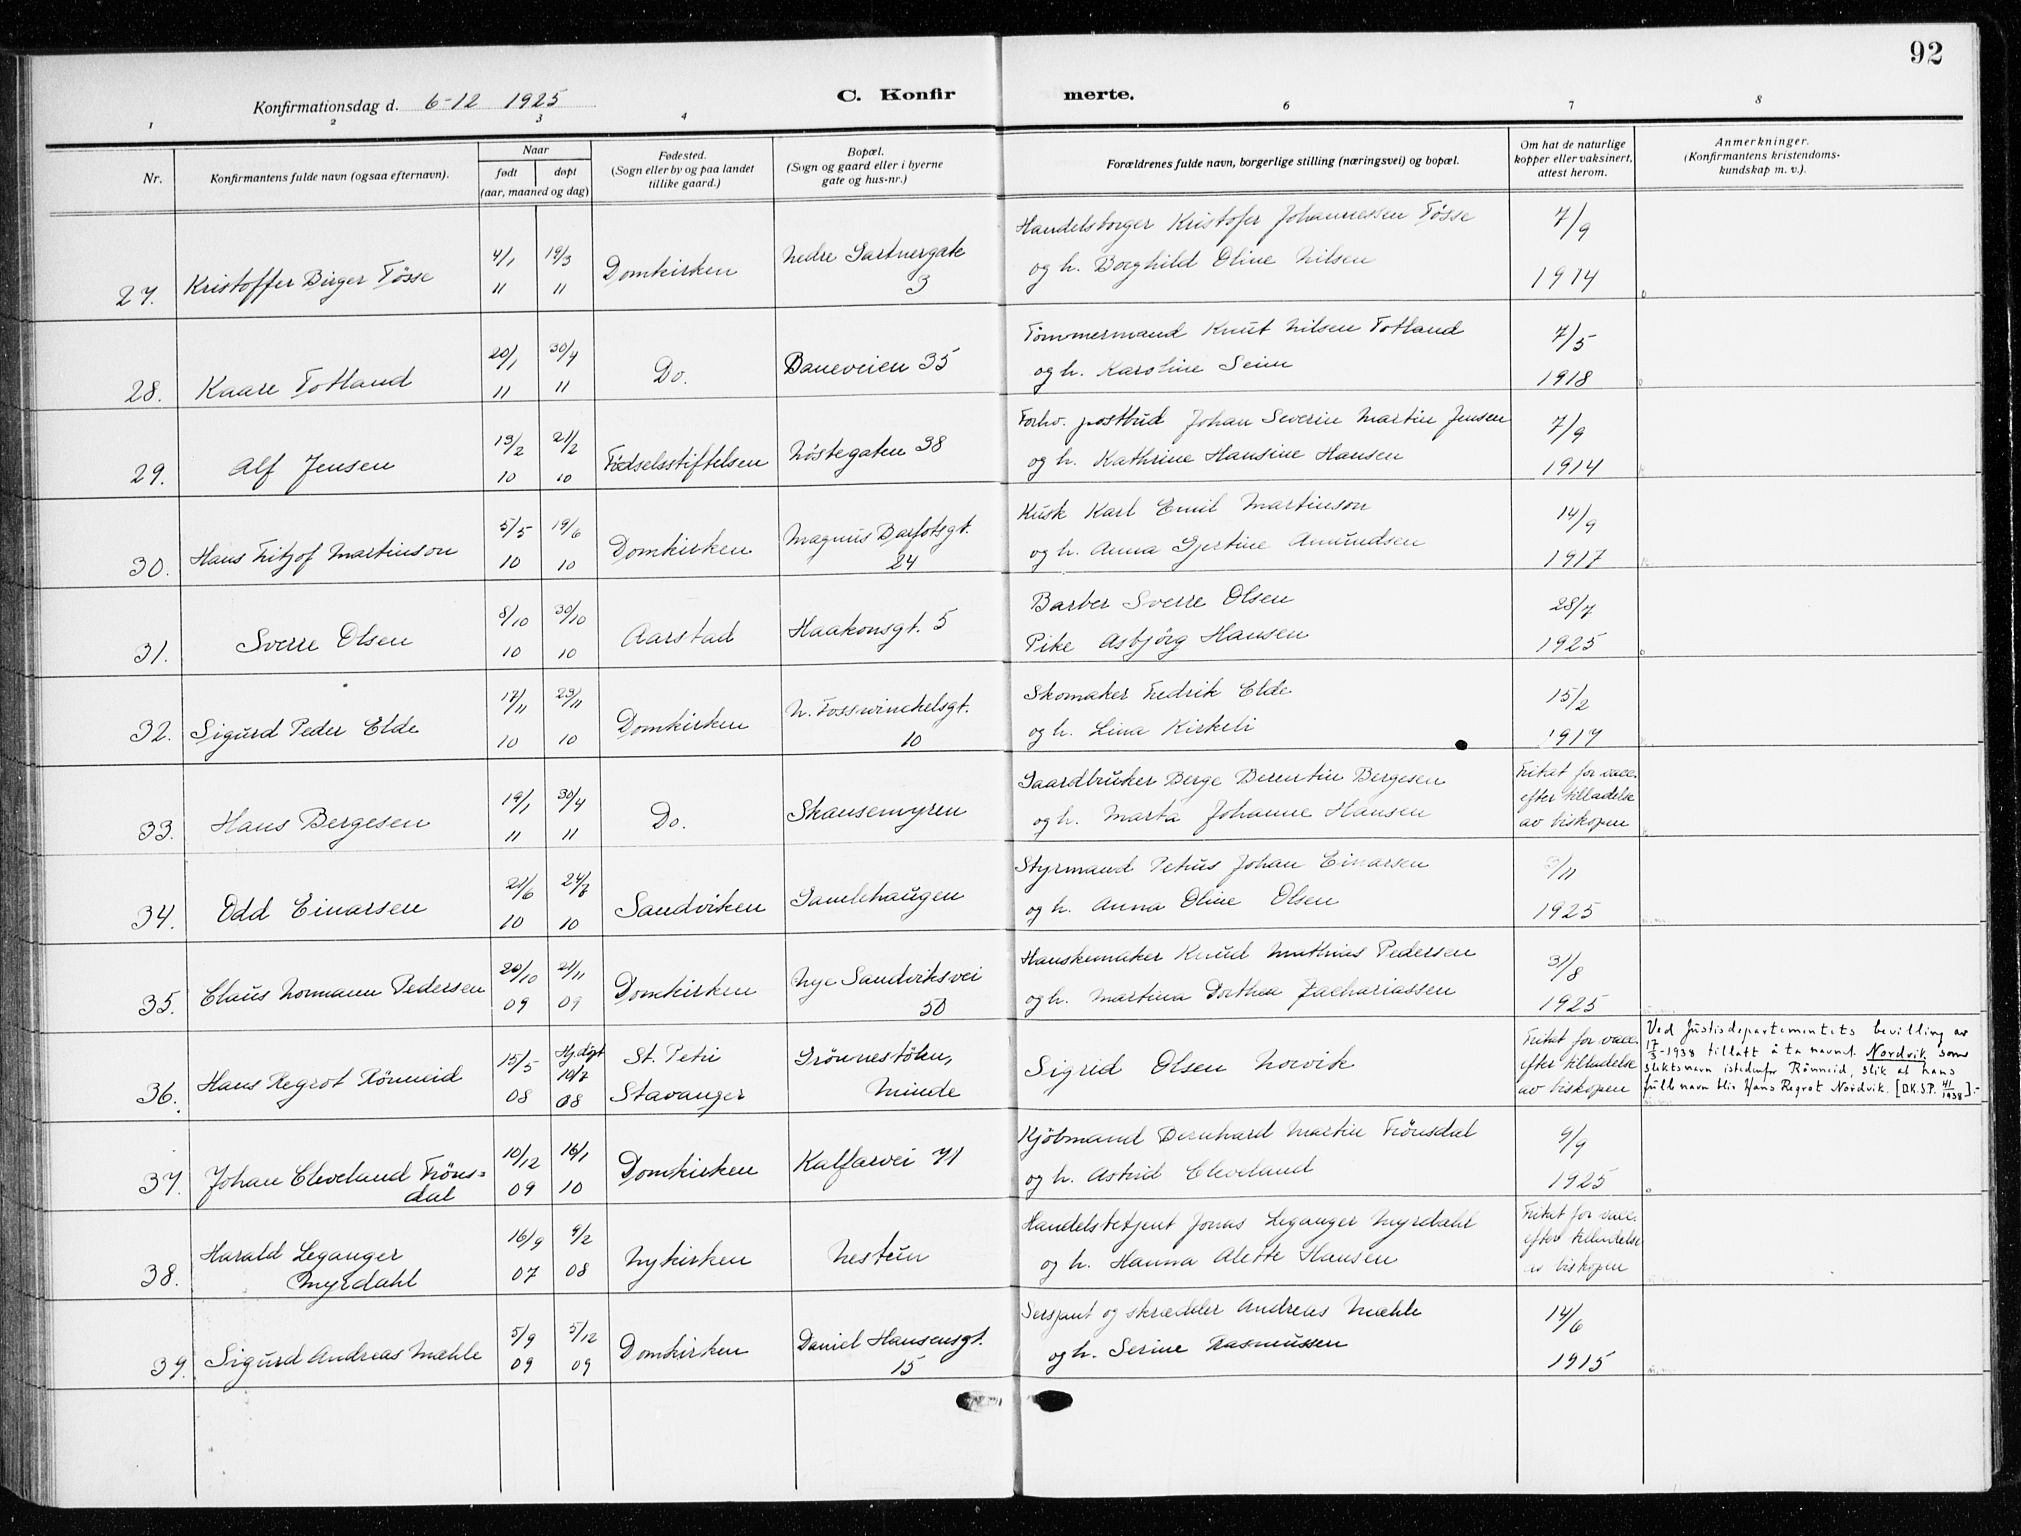 92
Konfirmationsdag d. 6-12 1925
C. Konfir merte.
1 2 3 4 6 7 8
Nr.
Konfirmantens fulde navn (ogsaa efternavn).
Naar
født
døpt
(aar, maaned og dag)
Fødested.
(Sogn eller by og paa landet
tillike gaard.)
Bopæl.
(Sogn og gaard eller i byerne
gate og hus-nr.)
Forældrenes fulde navn, borgerlige stilling (næringsvei) og bopæl.
Om hat de naturlige
kopper eller vaksinert,
attest herom.
Anmerkninger.
(Konfirmantens kristendoms-
kundskap m. v.).
Handelsborger Kristofer Johannessen Tøsse 7/9
27. Kristoffer Birger Tøsse 4/1 19/3 Domkirken Nedre Gartnergate og h. Borghild Oline Nilsen
11 11 3 1914
Tømmermand Knut Nilsen Totland 7/5
28. Kaare Totland 20/1 30/4 Do. Baneveien 35 og h. Karoline Seim
11 11 1918
Forhv. postbud Johan Severin Martin Jensen 7/9
29. Alf Jensen 13/2 21/2 Fødselsstiftelsen Nöstegaten 38 og h. Kathrine Hansine Hansen
10 10 1914
Kusk Karl Emil Martinson 14/9
30. Hans Fritjof Martinson 5/5 19/6 Domkirken Magnus Barfotsgt. og h. Anna Gjertine Amundsen
10 10 24 1917
Barber Sverre Olsen 28/7
31. Sverre Olsen 8/10 30/10 Aarstad Haakonsgt. 5 Pike Asbjörg Hansen
10 10 1925
Skomaker Fredrik Elde 15/2
32. Sigurd Peder Elde 17/11 23/11 Domkirken N. Fosswinckelsgt. og h. Lina Kirkeli
10 10 10 1917
Gaardbruker Berge Berentin Bergesen Fritat for vacc.
33. Hans Bergesen 19/1 30/4 Do. Skansemyren og h. Marta Johanne Hansen efter tilladelse
11 11 av biskopen
Styrmand Petrus Johan Einarsen 3/11
34. Odd Einarsen 21/6 24/7 Sandviken Gamlehaugen og h. Anna Oline Olsen
10 10 1925
Hanskemaker Knud Mathias Pedersen 31/8
35. Claus Normann Pedersen 20/10 21/11 Domkirken Nye Sandviksvei og h. Martina Dorthea Zachariassen
09 09 50 1925
36. Hans Regrot Rönneid 15/5 Hj.döpt 10/7 St. Petri Grönnestölen, Sigrid Olsen Norvik Fritat for vacc.
08 08 Stavanger Minde efter tilladelse
av biskopen
Ved Justisdepartementets bevilling av
17/3-1938 tillatt å ta navnet Nordvik som
slektsnavn istedenfor Rönneid, slik at hans
fulle navn blir Hans Regrot Nordvik. [D.K.S.P. 41/1938].-
Kjöbmand Bernhard Martin Frönsdal 9/9
37. Johan Cleveland Fröns= 10/12 16/1 Domkirken Kalfarvei 71 og h. Astrid Cleveland
dal 09 10 1925
Handelsbetjent Jonas Leganger Myrdahl Fritat for vacc.
38. Harald Leganger 16/9 9/2 Nykirken Nestun og h. Hanna Alette Hansen efter tilladelse
Myrdahl 07 08 av biskopen
Sersjant og skrædder Andreas Mæhle 14/6
39. Sigurd Andreas Mæhle 5/9 5/12 Domkirken Daniel Hansensgt. og h. Serine Rasmussen
09 09 15 1915